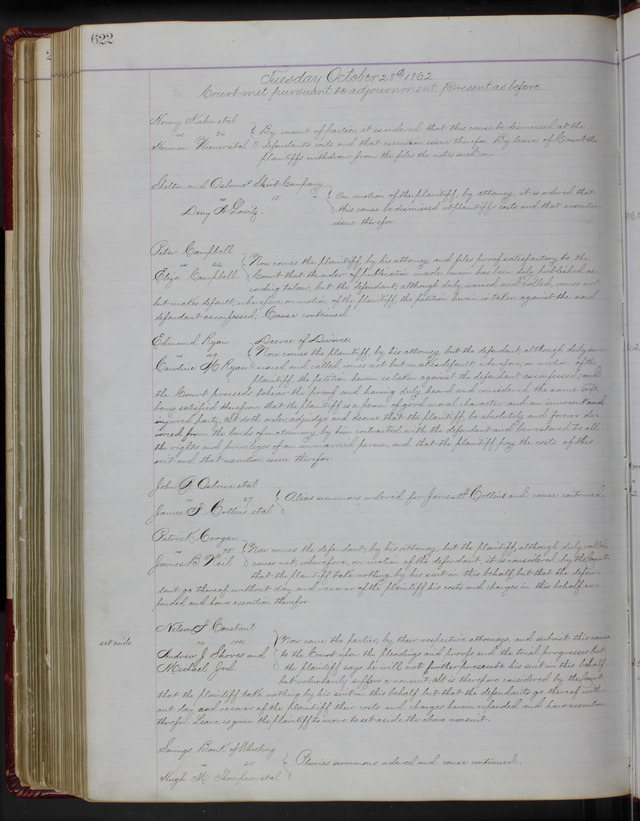 622
Tuesday October 28th 1862
Court met pursuant to adjournment, Present as before.
Henry Kuhn et al
vs
Herman Wiener et al
By consent of parties, it is ordered that this cause be dismissed at the
defendants costs and that execution issue therefor. By leave of Court the
plaintiffs withdraw from the files the notes sued on.
Skelton and Osborne Shirt Company
vs
Deny A. Lowitz.
On motion of the plaintiff, by attorney, it is ordered that
this cause be dismissed at plaintiff costs and that execution
issue therefor
Peter Campbell
vs
Eliza Campbell
Now comes the plaintiff, by his attorney, and files proof satisfactory to the
Court that the order of publication made herein has been duly published ac-
cording to law, but the defendant, although duly warned and called, comes not
but makes default; wherefore, on motion of the plaintiff, the petition herein is taken against the said
defendant as confessed, Cause continued.
Edmund Ryan
vs
Caroline H Ryan
Decree of Divorce
Now comes the plaintiff, by his attorney, but the defendant, although duly sum-
moned and called, comes not but makes default; wherefore, on motion of the
plaintiff, the petition herein is taken against the defendant as confessed, and
the Court proceeds to hear the proof and having duly heard and considered the same and
being satisfied therefrom that the plaintiff is a person of good moral character and an innocent and
injured party, It doth order, adjudge and decree that the plaintiff be absolutely and forever di-
vorced from the bonds of matrimony by him contracted with the defendant and be restored to all
the rights and privileges of an unmarried person, and that the plaintiff pay the costs of this
suit and that execution issue therefor.
John P. Osborne et al
vs
James T Collins et al
Alias summons ordered for James T Collins and cause continued.
Patrick Grogan
vs
James B Neil
Now comes the defendant, by his attorney, but the plaintiff, although duly called,
comes not, wherefore, on motion of the defendant, it is considered by the Court
that the plaintiff take nothing by his suit in this behalf, but that the defen-
dant go thereof without day and recover of the plaintiff his costs and charges in this behalf ex-
pended and have execution therefor.
set aside
Nelson J. Constant
vs
Andrew J. Shores and
Michael Joel
Now come the parties, by their respective attorneys, and submit this cause
to the Court upon the pleadings and proofs and the trial progresses but
the plaintiff says he will not further prosecute his suit in this behalf
but voluntarily suffers a nonsuit. It is therefore considered by the Court
that the plaintiff take nothing by his suit in this behalf but that the defendants go thereof with-
out day and recover of the plaintiff their costs and charges herein expended and have execution
therefor. Leave is given the plaintiff to move to set aside the above nonsuit.
Savings Bank of Wheeling
vs
Hugh M Thompson et al
Pluries summons ordered and cause continued.